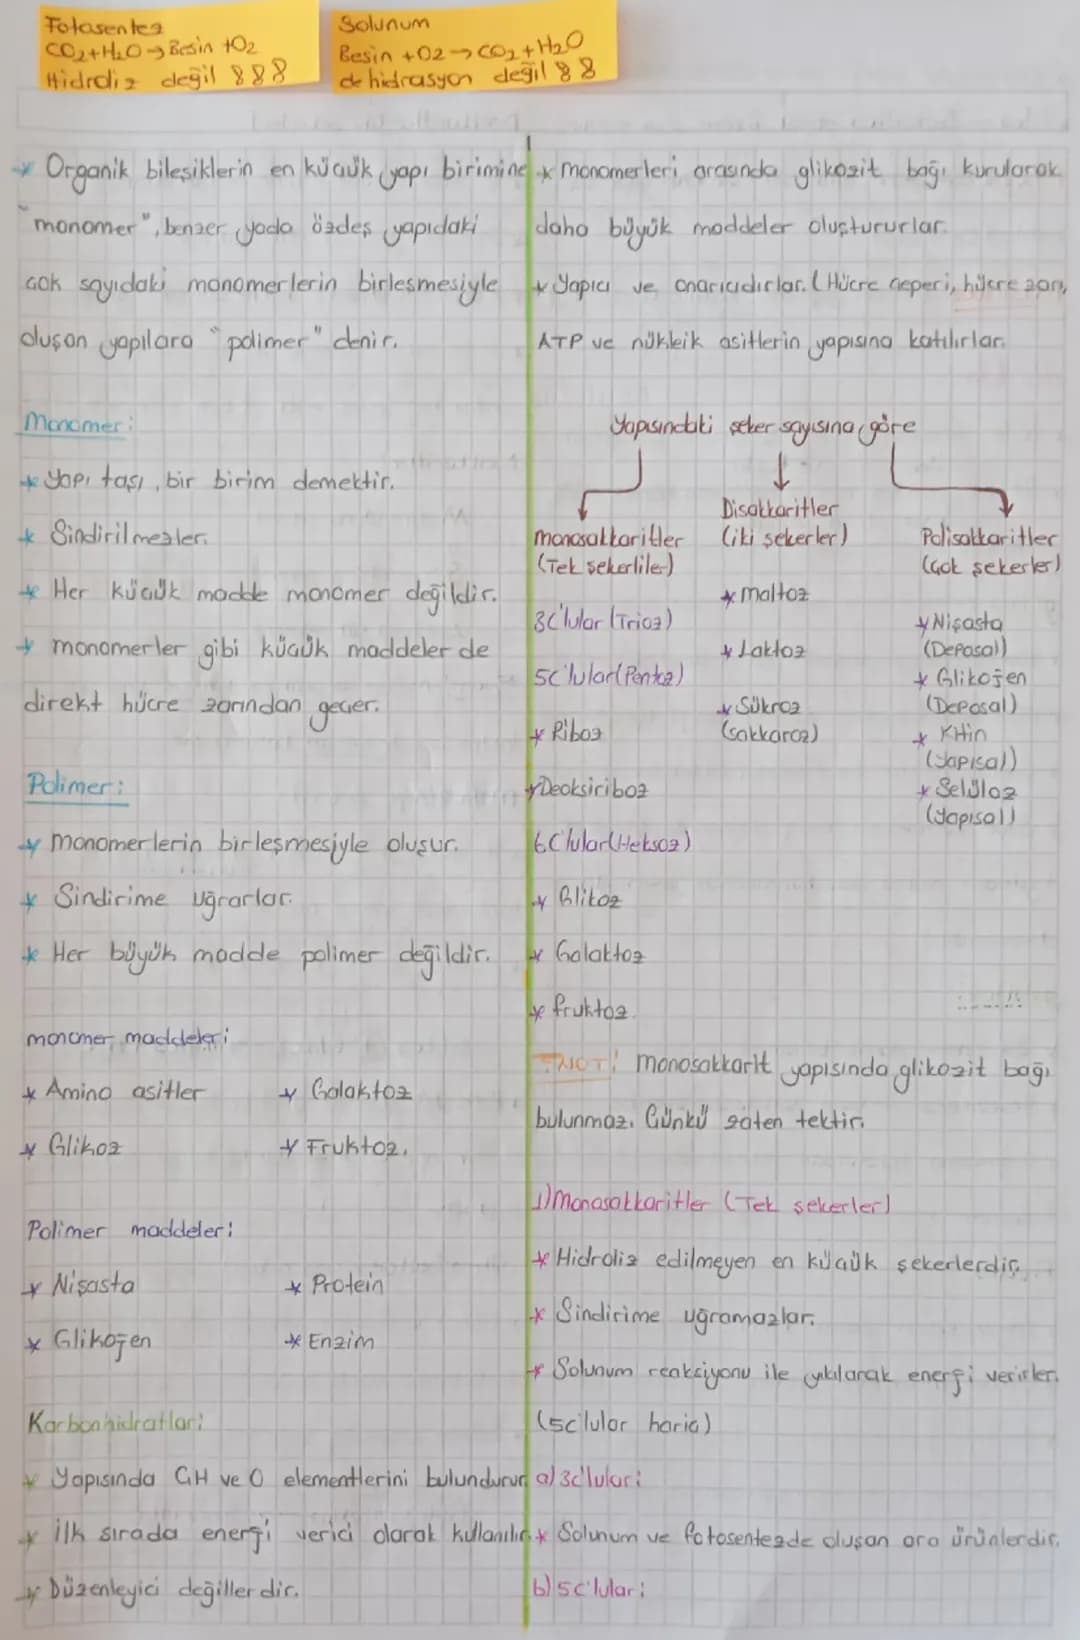 Fotosentez
CO2+H2O→Besin +O2
Hidroliz değil
Solunum
Besin +O2→CO2+H2O
dehidrasyon değil
* Organik bileşiklerin en küçük yapı birimine
"monomer", benzer yada özdeş yapıdaki
çok sayıdaki monomerlerin birleşmesiyle
oluşan yapılara "polimer" denir.
Monomer:
* Yapı taşı, bir birim demektir.
* Sindirilmezler.
* Her küçük madde monomer değildir.
* monomerler gibi küçük maddeler de
direkt hücre zarından geçer.
Polimer:
* monomerlerin birleşmesiyle oluşur.
* Sindirime uğrarlar.
* Her büyük madde polimer değildir.
monomer maddeler;
* Amino asitler
* Galaktoz
* Glikoz
* Fruktoz.
Polimer maddeler:
* Nişasta
* Protein
* Glikojen
* Enzim
Karbonhidratlar:
* Yapısında C,H ve O elementlerini bulundurur
* İlk sırada enerji verici olarak kullanılır
* Düzenleyici değillerdir.
* monomerleri arasında glikozit bağı kurularak
daha büyük maddeler oluştururlar.
* Yapıcı ve onarıcıdırlar. (Hücre çeperi, hücre zarı,
ATP ve nükleik asitlerin yapısına katılırlar.
Yapısındaki şeker sayısına göre
monosakkaritler
(Tek şekerliler)
3C'lular (Trioz)
5C'lular (Pentoz)
* Riboz
* Deoksiriboz
6C'lular (Heksoz)
* Glikoz
* Galaktoz
* fruktoz
Disakkaritler
(iki şekerler)
* maltoz
* Laktoz
* Sükroz
(sakkaroz)
Polisakkaritler
(Çok şekerler)
* Nişasta
(Deposal)
* Glikojen
(Deposal)
* Kitin
(Yapısal)
* Selüloz
(Yapısal)
NOT! monosakkarit yapısında glikozit bağı
bulunmaz. Çünkü zaten tektir.
1) Monosakkaritler (Tek şekerler)
* Hidroliz edilmeyen en küçük şekerlerdir.
* Sindirime uğramazlar.
* Solunum reaksiyonu ile yıkılarak enerji verirler.
(5c'lular hariç)
a) 3c'lular:
* Solunum ve fotosentezde oluşan ara ürünlerdir.
b) 5c'lular: